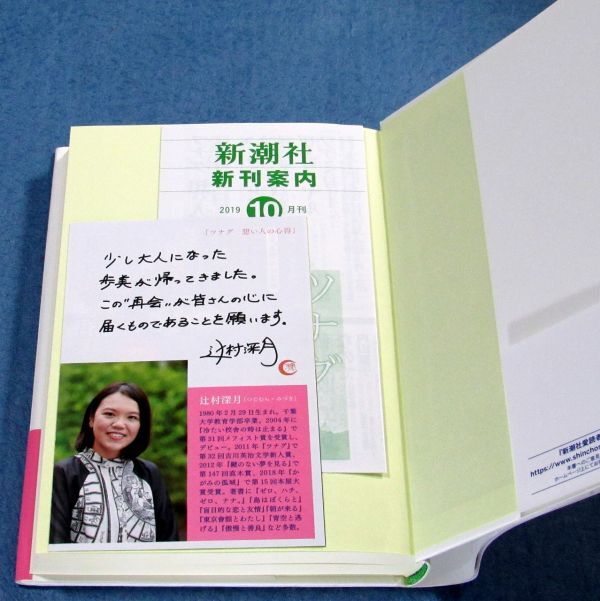 新潮社
新刊案内
2019 10 月刊
『ツナグ 想い人の心得』
少し大人になった
歩美が帰ってきました。
この"再会"が皆さんの心に
届くものであることを願います。
辻村深月
ツナグ
辻村深月(つじむら・みづき)
1980年2月29日生まれ。千葉
大学教育学部卒業。2004年に
『冷たい校舎の時は止まる』で
第31回メフィスト賞を受賞し、
デビュー。2011年『ツナグ』で
第32回吉川英治文学新人賞、
2012年『鍵のない夢を見る』で
第147回直木賞、2018年『か
がみの孤城』で第15回本屋大
賞受賞。著書に『ゼロ、ハチ、
ゼロ、ナナ。』『島はぼくらと』
『盲目的な恋と友情』『朝が来る』
『東京會舘とわたし』『青空と逃
げる』『傲慢と善良』など多数。
『新潮社愛読者
https://www.shincho
本書へのご意見
ホームページ上にてお